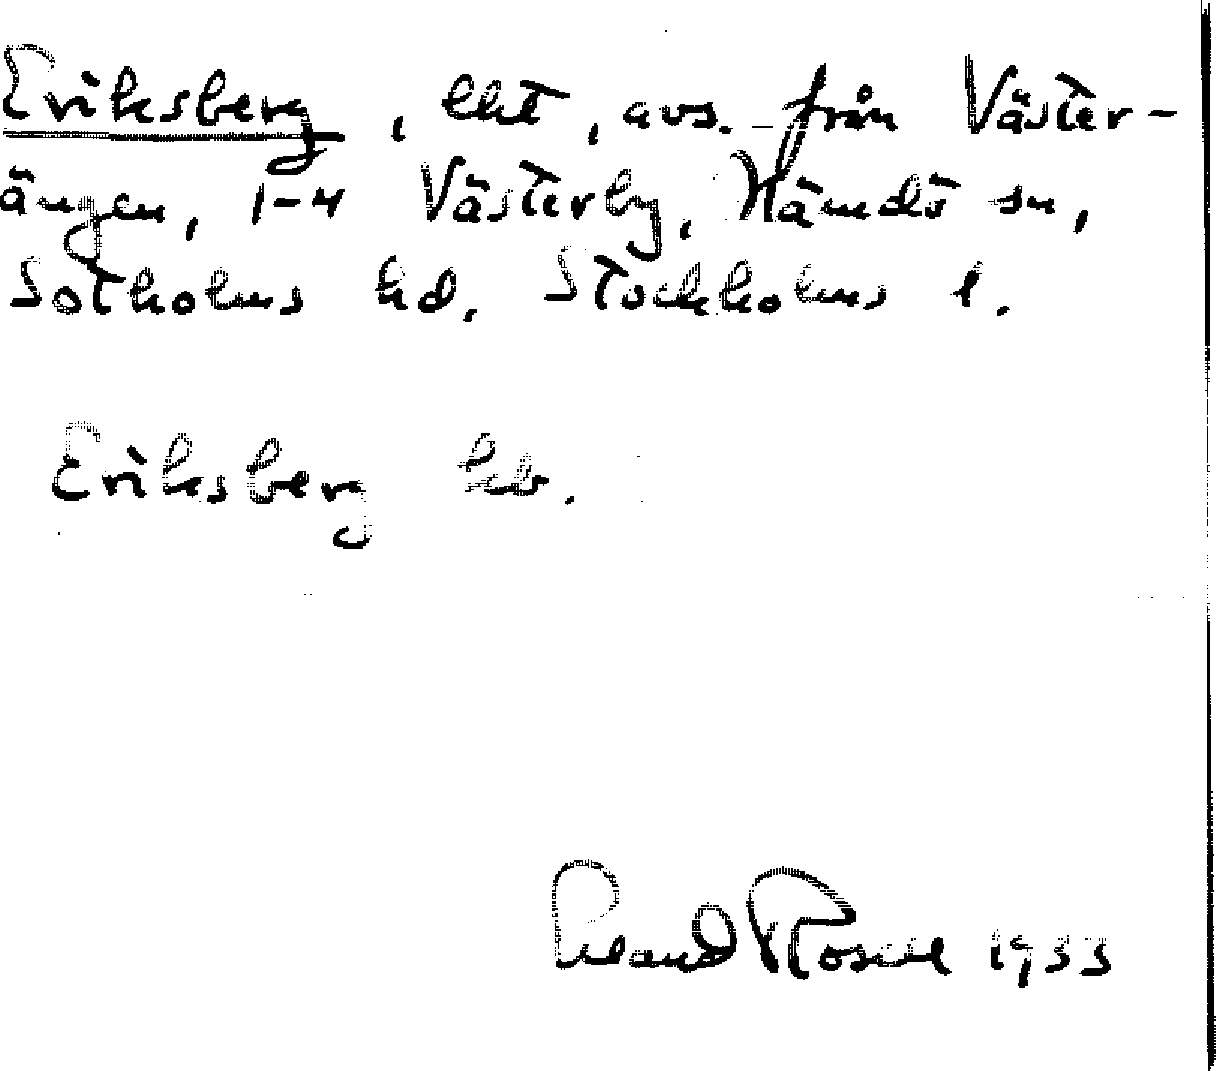 Eriksberg, lht, avs. från Väster-
ängen, 1-4 Västerby, Nämdö sn,
Sotholms hd, Stockholms l.
Eriksberg kb.
Rosell 1933